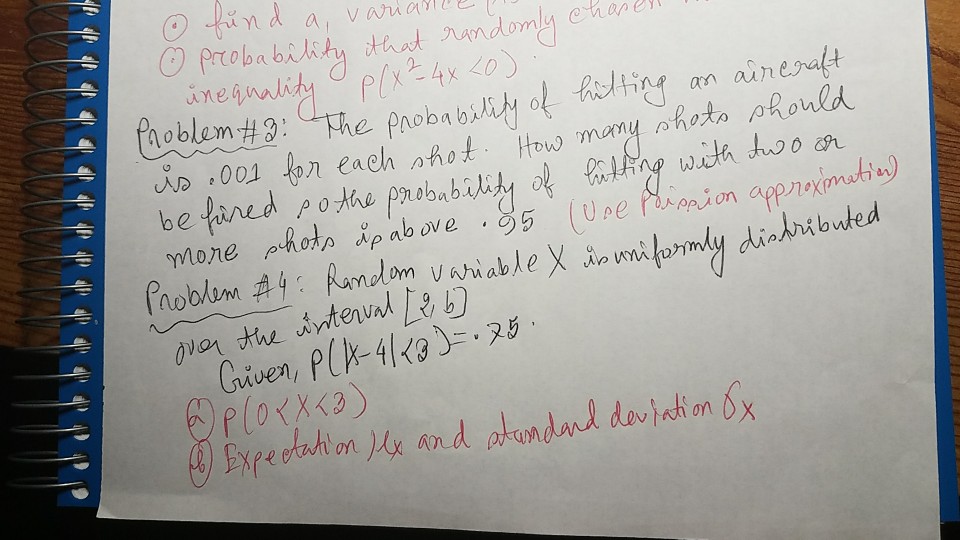 ⊙ find a, variance
⊙ probability that randomly chosen
inequality P(X²-4x <0).
Problem #3: The probability of hitting an aircraft
is .001 for each shot. How many shots should
be fired so the probability of hitting with two or
more shots is above .95 (Use Poission approximation)
Problem #4: Random variable X is uniformly distributed
over the interval [2, b]
Given, P(|X-4|<3)=.75.
ⓐ P(0<X<3)
ⓑ Expectation μx and standard deviation σx